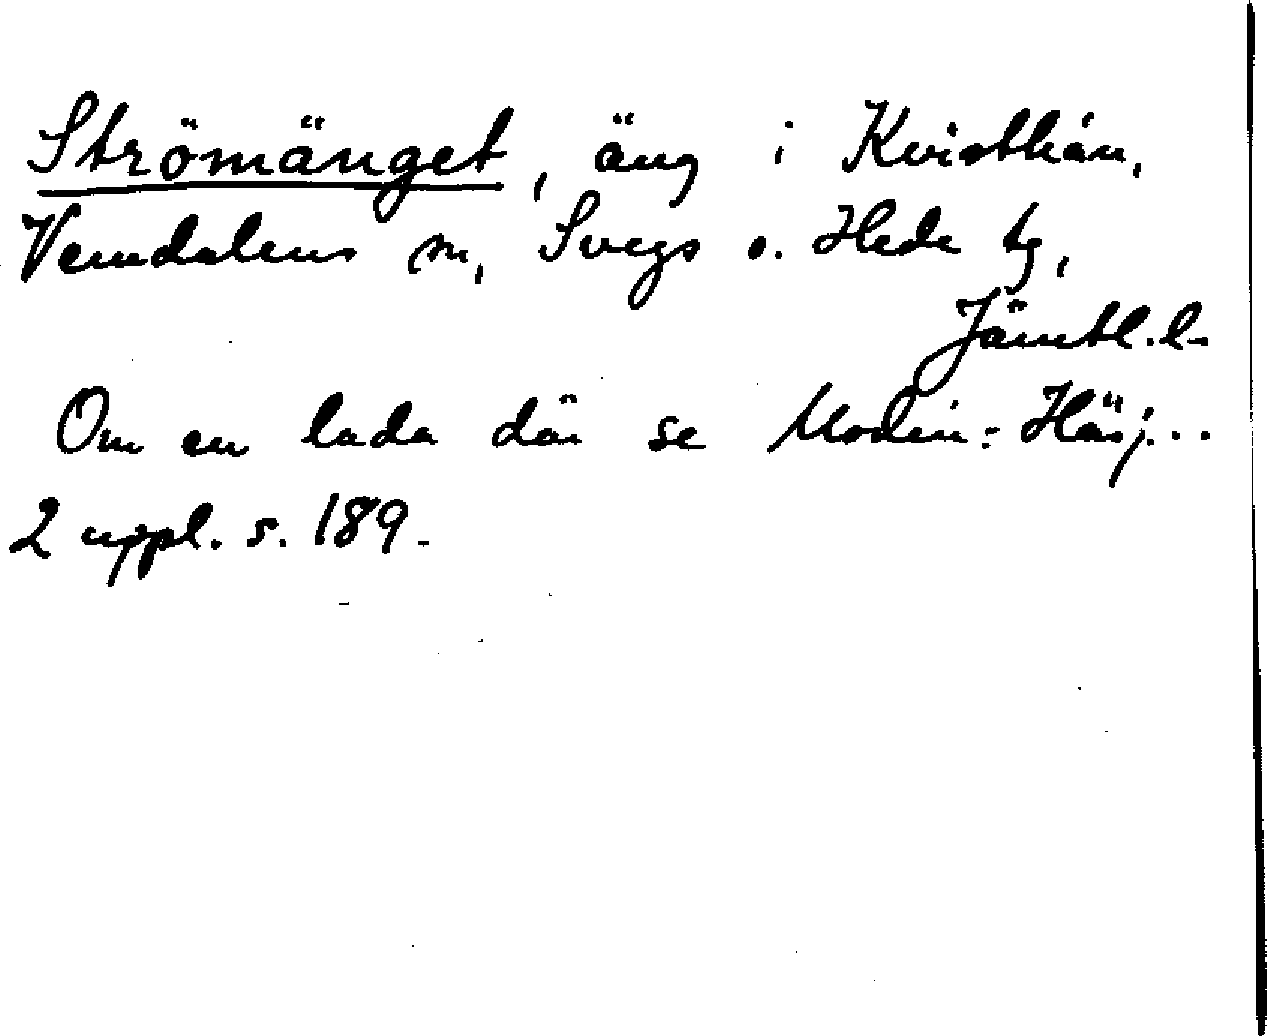 Strömänget, äng i Kvisthån,
Vemdalens sn, Svegs o. Hede tg,
Jämtl. l.
Om en lada där se Modin: Härj...
2 uppl. s. 189.